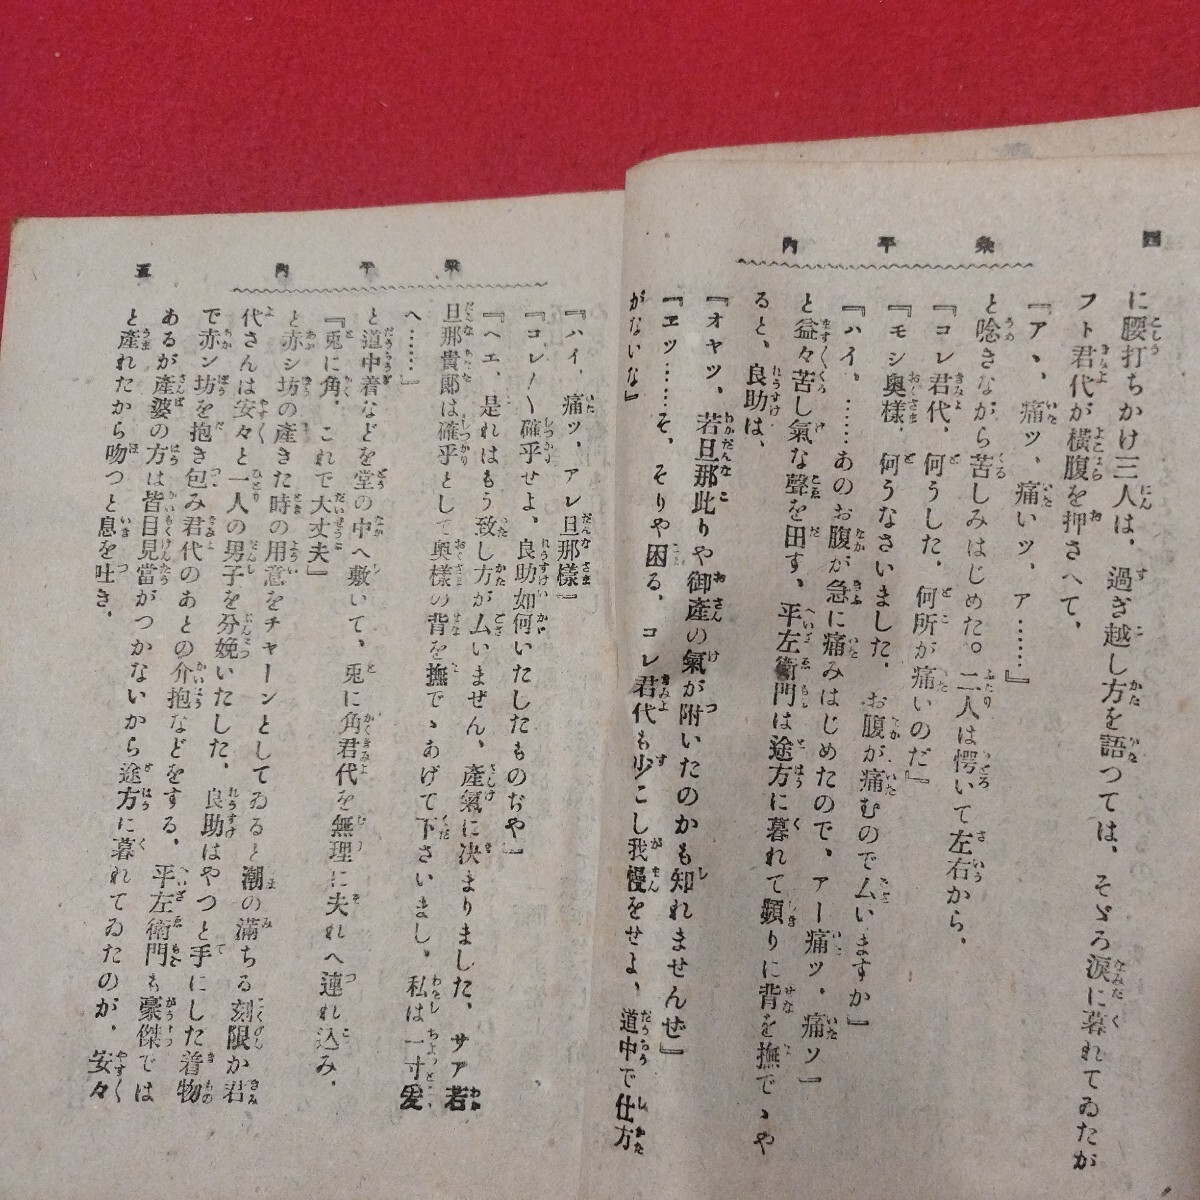 四
粂平内
に腰打ちかけ三人は、過ぎ越し方を語つては、そゞろ涙に暮れてゐたが
フト君代が横腹を押さへて、
『アヽ、痛ッ、痛いッ、ア……』
と唸きながら苦しみはじめた。二人は愕いて左右から、
『コレ君代、何うした、何所が痛いのだ』
『モシ奥様、何うなさいました、お腹が痛むので厶いますか』
『ハイ、……あのお腹が急に痛みはじめたので、アー痛ッ、痛ッ』
と益々苦し氣な聲を田す、平左衛門は途方に暮れて頻りに背を撫でゝや
ると、良助は、
『オヤッ、若旦那此りや御産の氣が附いたのかも知れませんぜ』
『エッ……そ、そりや困る、コレ君代も少こし我慢をせよ、道中で仕方
がないな』
粂平内
五
『ハイ、痛ッ、アレ旦那樣』
『コレ〳〵確乎せよ、良助如何いたしたものぢや』
『ヘエ、是れはもう致し方が厶いません、産氣に决まりました、サア若
旦那貴郎は確乎として奥樣の背を撫でゝあげて下さいまし、私は一寸爰
へ……』
と道中着などを堂の中へ敷いて、兎に角君代を無理に夫れへ連れ込み、
『兎に角、これで大丈夫』
と赤シ坊の産きた時の用意をチャーンとしてゐると潮の滿ちる刻限か君
代さんは安々と一人の男子を分娩いたした、良助はやつと手にした着物
で赤ン坊を抱き包み君代のあとの介抱などをする、平左衛門も豪傑では
あるが産婆の方は皆目見當がつかないから途方に暮れてゐたのが、安々
と産れたから吻つと息を吐き、